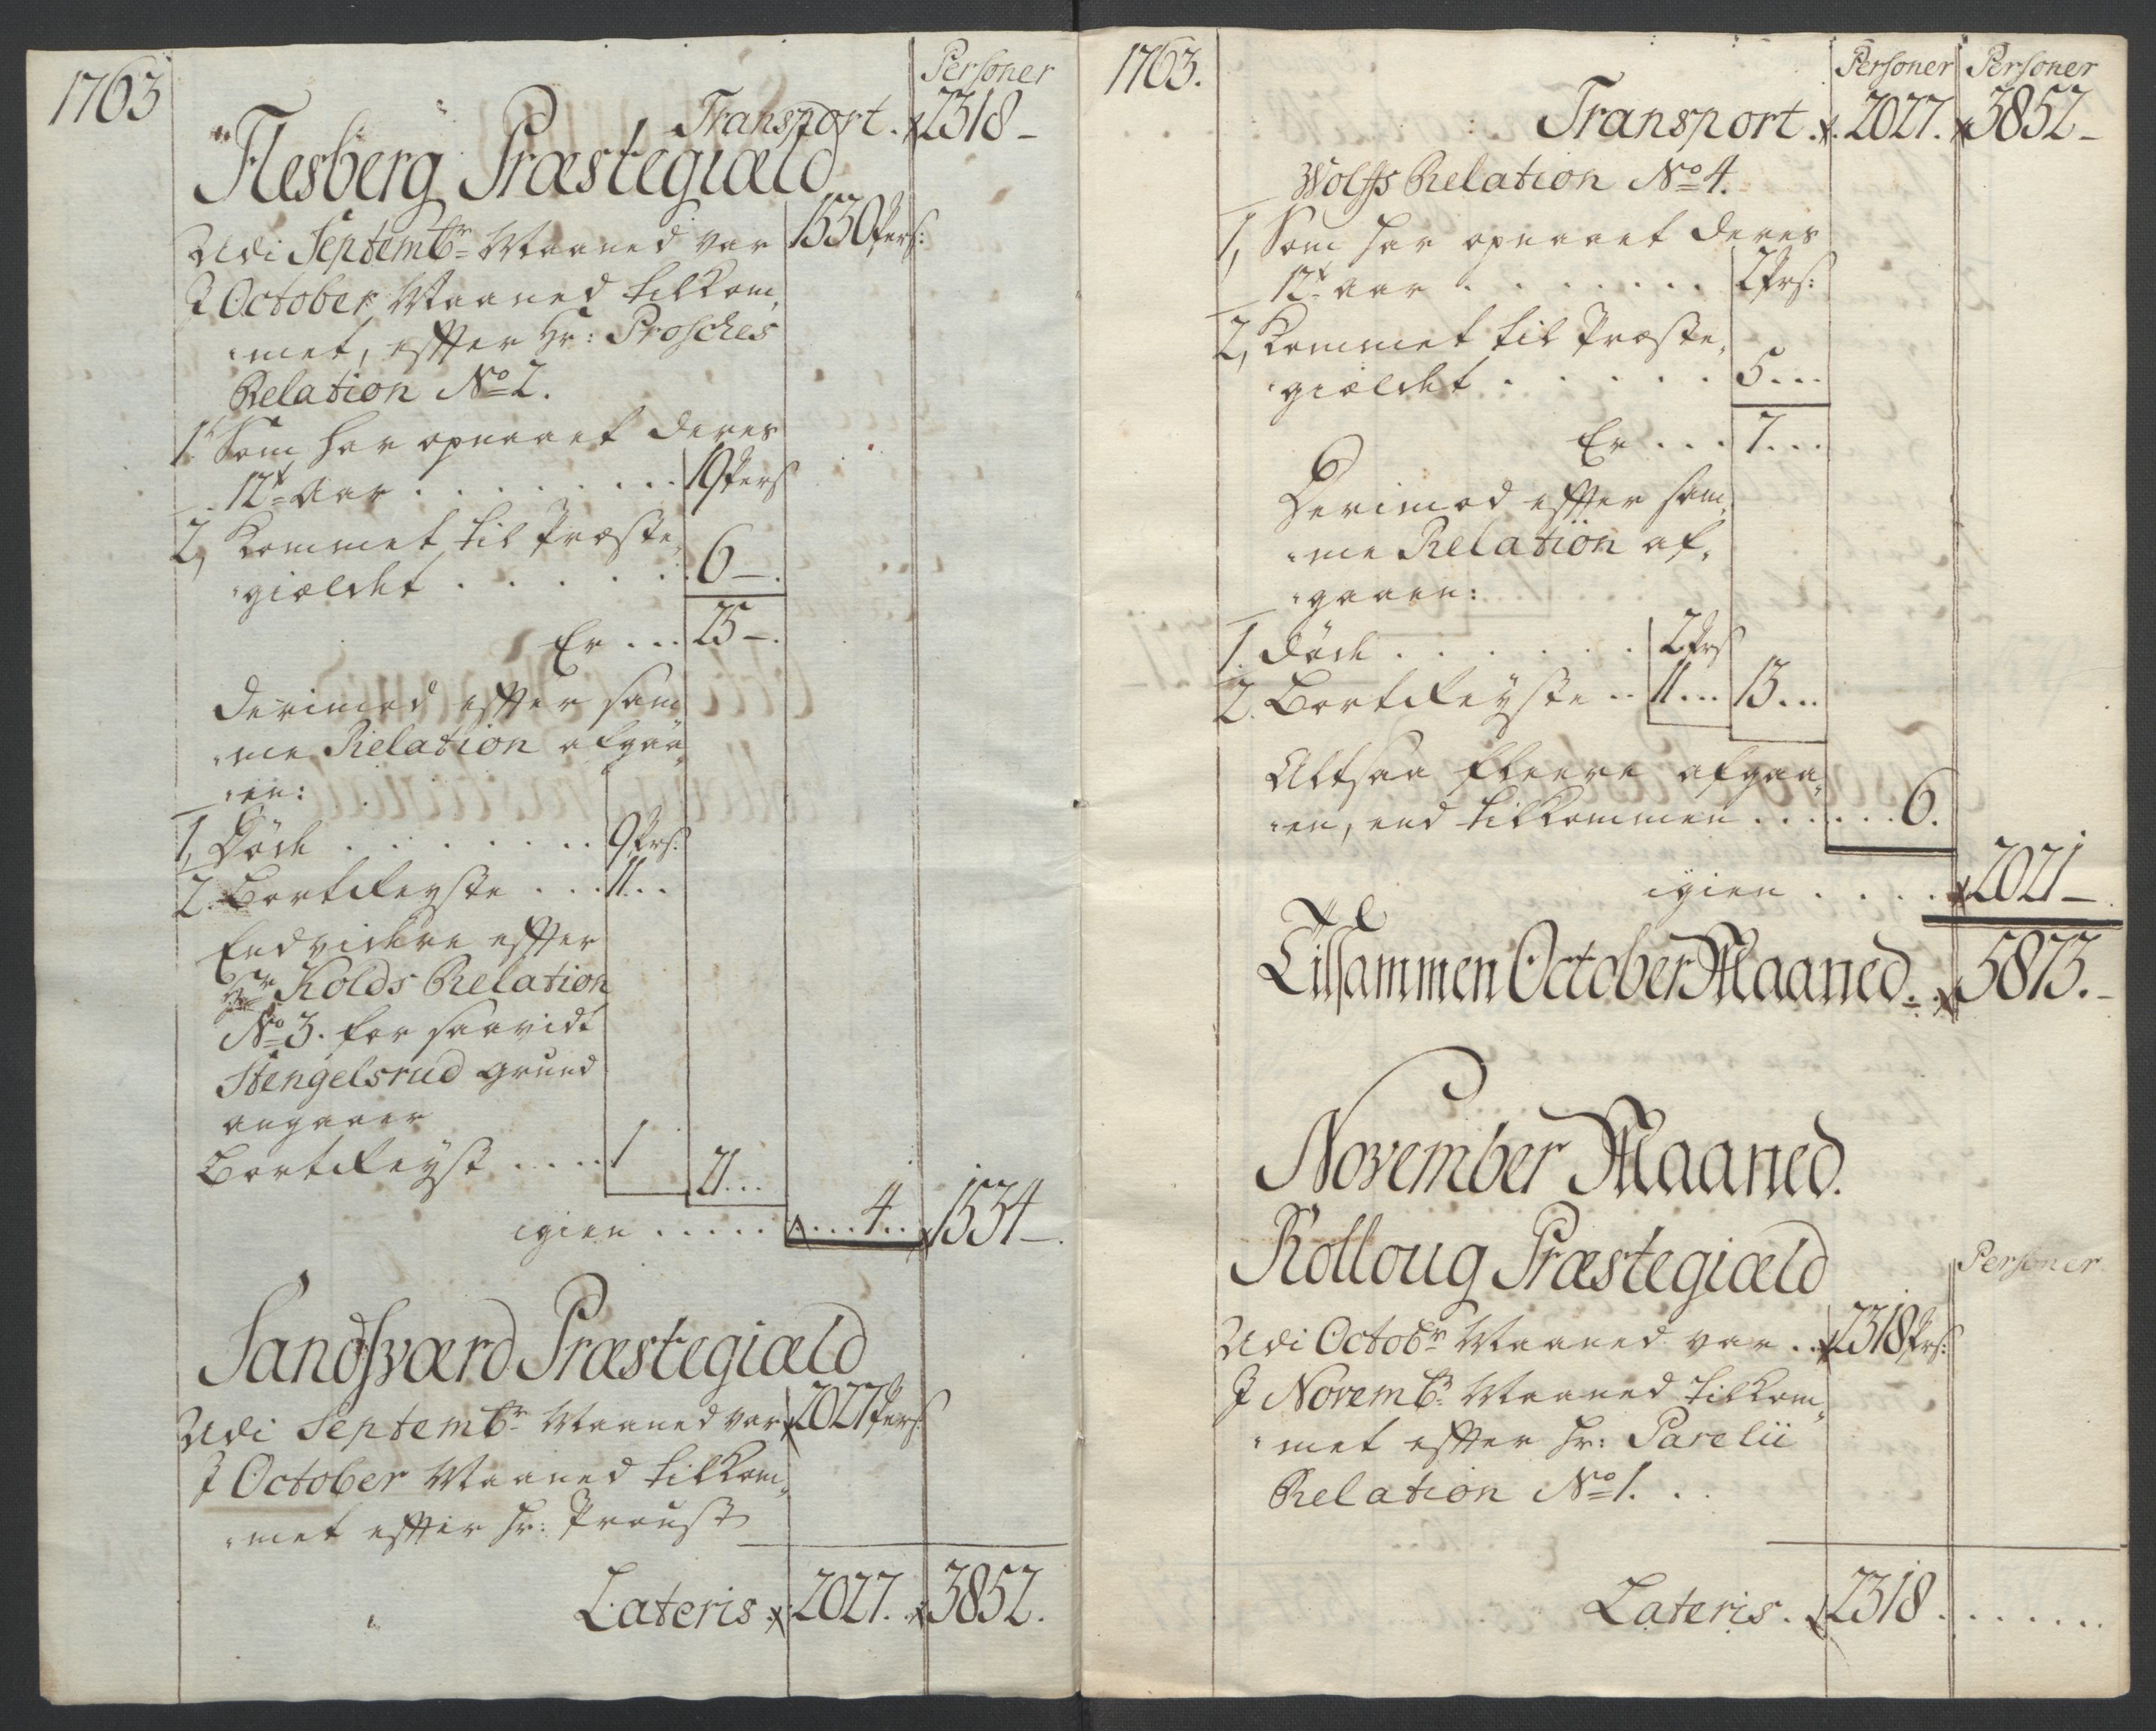 1763
Personer
Transport. 2318 –
Flesberg Præstegiæld
Udi Septembr Maaned var 1530 Pers:
J October Maaned tilkom„
„met, efter Hr: Prosches
Relation No 2.
1. Som har opnaaet deres
12te Aar . . . . . . . . 19 Pers
2, Kommet til Præste„
„giældet . . . . . . 6 –.
Er ... 25 –.
Derimod efter sam
„me Relation afgaa„
„en:
1, Døde . . . . . . . 9 Prs:
2. Bortreyste . . . 11 . .
Endvidere efter
Hr Kolds Relation
No 3. for saavidt
Stengelsrud grund
angaaer
Bortreyst .... 1 21...
igien . . . . . . . . 4 . . 1534 –.
Sandsværd Præstegiæld
Udi Septembr Maaned var 2027 Pers:
J October Maaned tilkom„
„met efter Hr: Proust
Lateris 2027. 3852.
1763.
Personer Personer
Transport. 2027. 3852 –
Wolffs Relation No 4.
1, Som har opnaaet deres
12te aar . . . . . . . 2 Prs:
2, Kommet til Præste„
„giældet . . . . . . 5...
Er ... 7...
Derimod efter sam„
„me Relation af„
„gaaen:
1. Døde . . . . . . 2 Prs
2. Bortreyste .. 11... 13...
Altsaa fleere afgaa„
„en, end tilkommen . . . . . . 6.
igien . . . . 2021 –.
Tilsammen October Maaned. 5873. –
November Maaned.
Kolloug Præstegiæld
Personer
Udi Octobr Maaned var .. 2318 Prs:
J Novembr Maaned tilkom„
„met efter Hr: Parelii
Relation No 1. .
Lateris. 2318 . . . . . . .